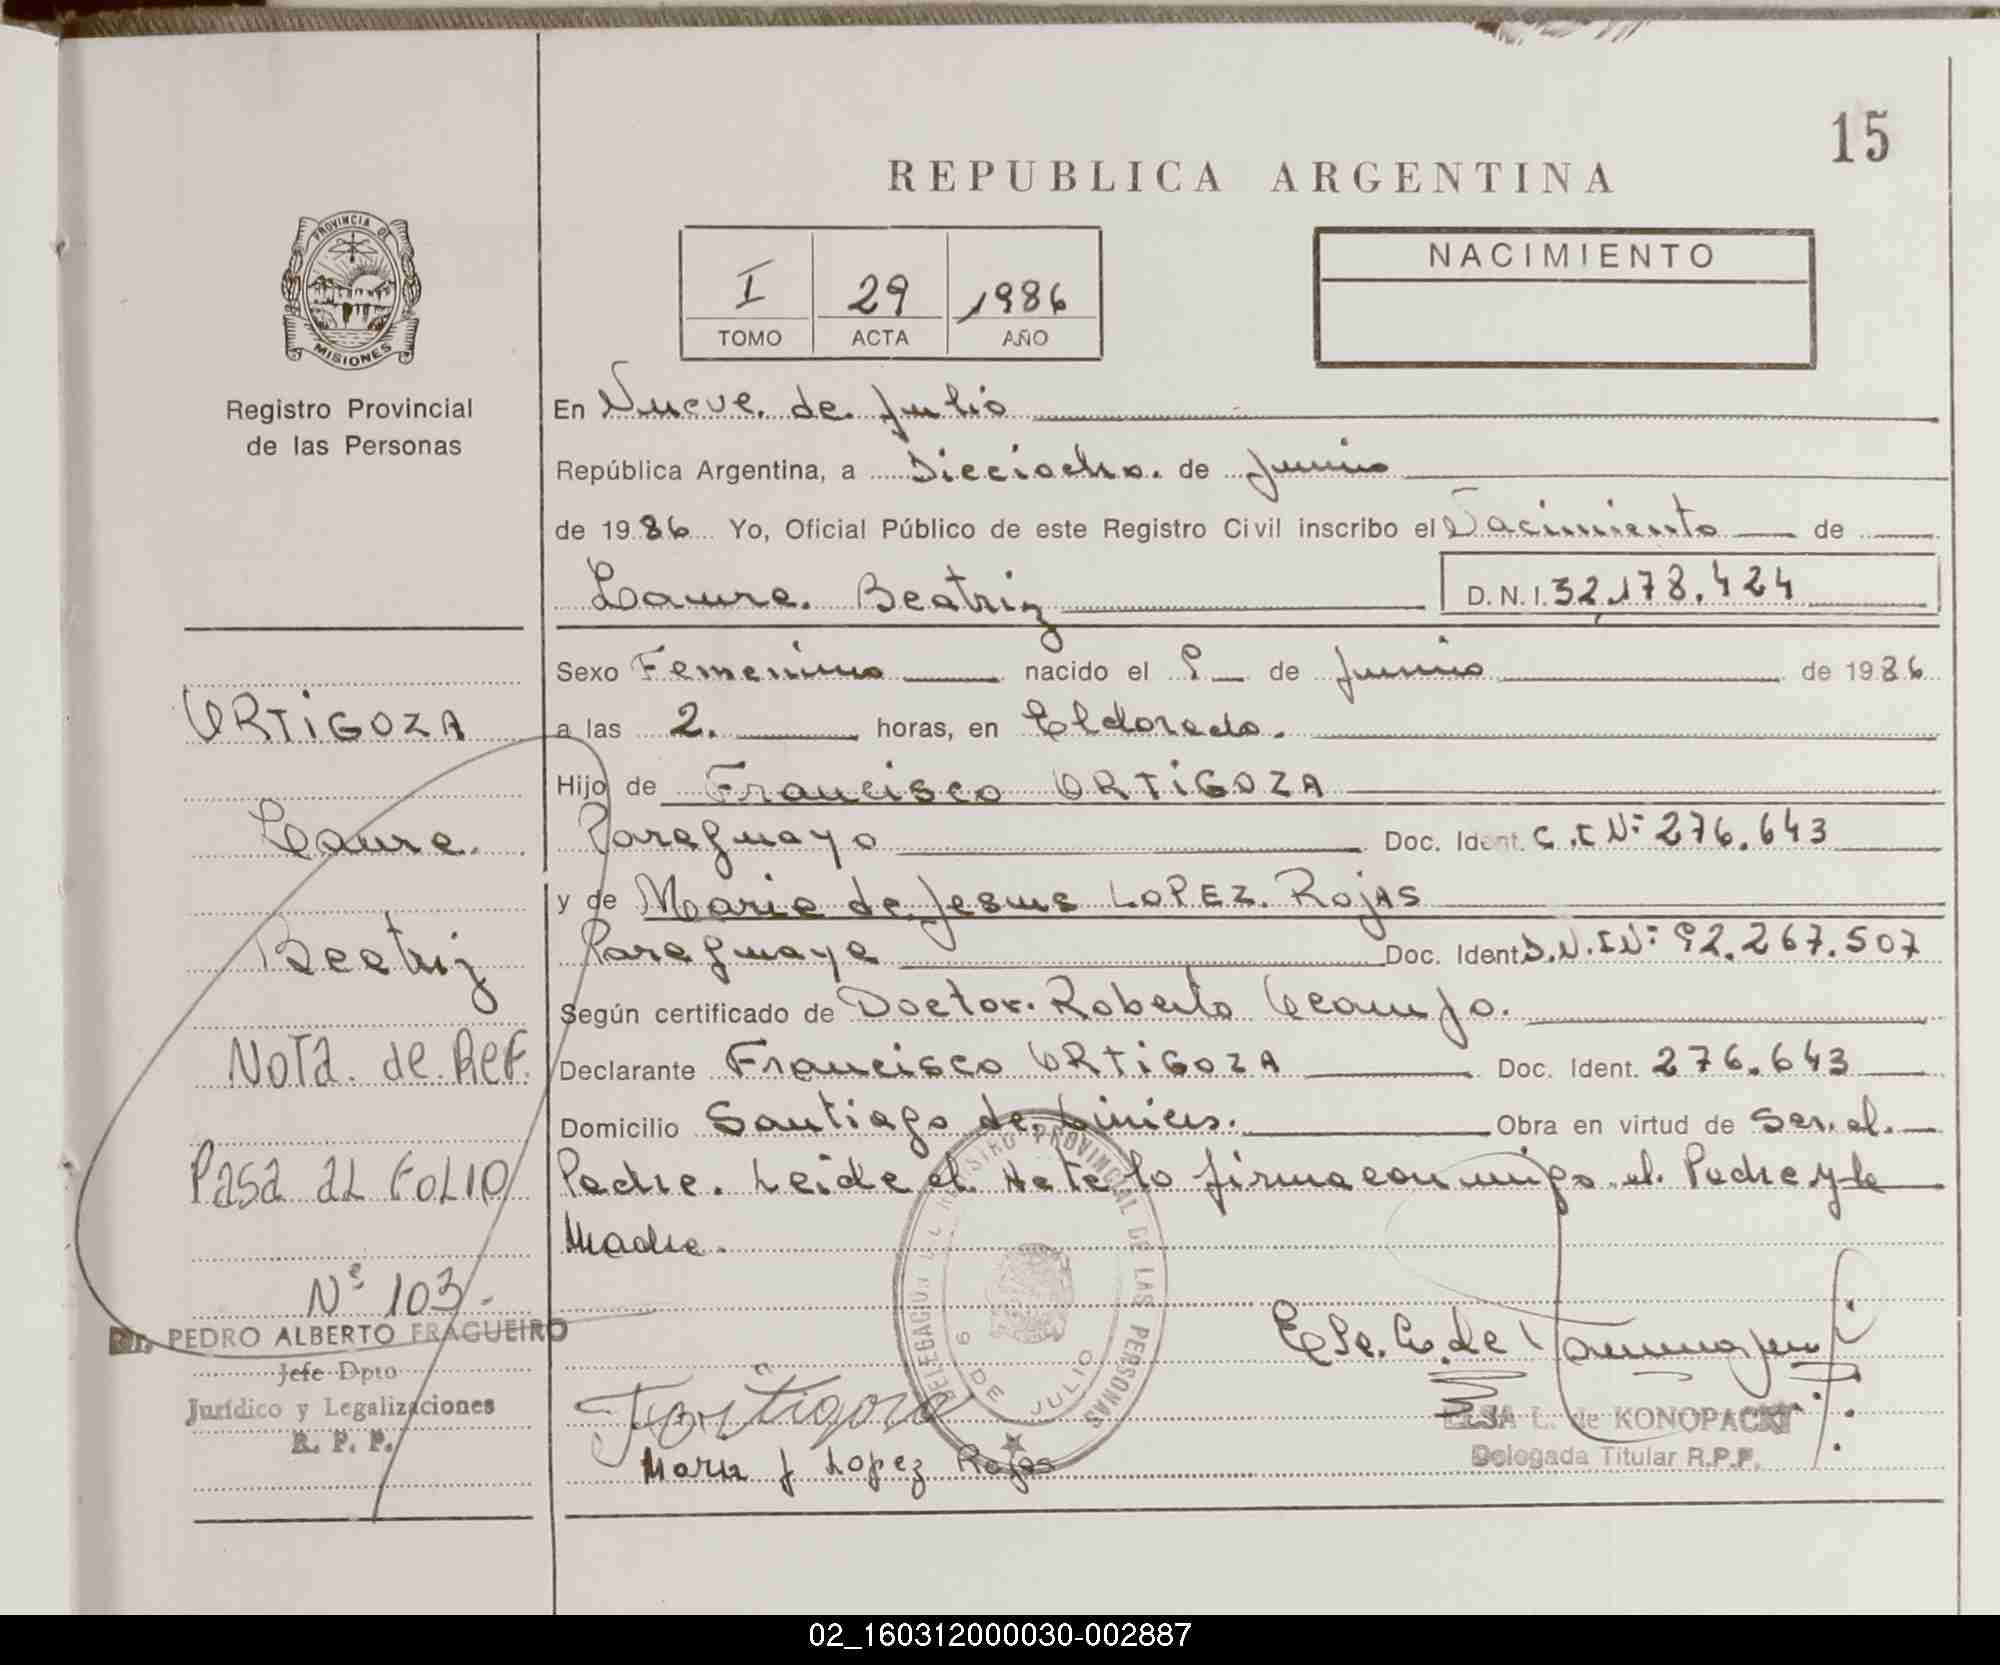 15
REPUBLICA ARGENTINA
PROVINCIA DE
MISIONES
Registro Provincial
de las Personas
I 29 1986
TOMO ACTA AÑO
NACIMIENTO
En Nueve de Julio
República Argentina, a Dieciocho. de Junio
de 1986 Yo, Oficial Público de este Registro Civil inscribo el Nacimiento de
Laura Beatriz D. N. I. 32.178.424
Sexo Femenino nacido el 9 de Junio de 1986
a las 2. horas, en Eldorado.
Hijo de Francisco ORTIGOZA
Paraguayo Doc. Ident. C.I Nº 276.643
y de Maria de Jesus LOPEZ ROJAS
Paraguaya Doc. Ident D.N.I Nº 92.267.507
Según certificado de Doctor. Roberto
Declarante Francisco ORTIGOZA Doc. Ident. 276.643
Domicilio Santiago de Liniers. Obra en virtud de ser el
Padre. Leida el Acta lo firma conmigo el Padre y la
Madre.
ORTIGOZA
Laura
Beatriz
Nota de Ref.
Pasa al FOLIO
Nº 103.-
Dr. PEDRO ALBERTO FRAGUEIRO
Jefe Dpto
Jurídico y Legalizaciones
R. P. P.
DELEGACION DEL REGISTRO PROVINCIAL DE LAS PERSONAS
9 DE JULIO
FOrtigoza
Maria J Lopez Rojas
ELSA L. de KONOPACKI
Delegada Titular R.P.P.
02_160312000030-002887